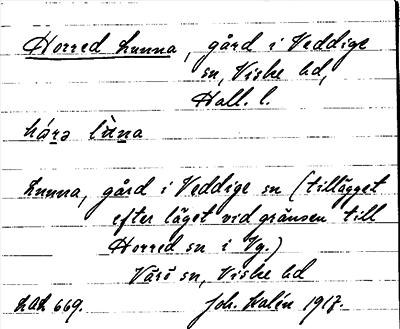 Horred Lunna, gård i Veddige
sn, Viske hd,
Hall. l.
hárə lùna
Lunna, gård i Veddige sn (tillägget
efter läget vid gränsen till
Horred sn i Vg.)
Värö sn, Viske hd
LAL 669. Joh. Kalén 1917.